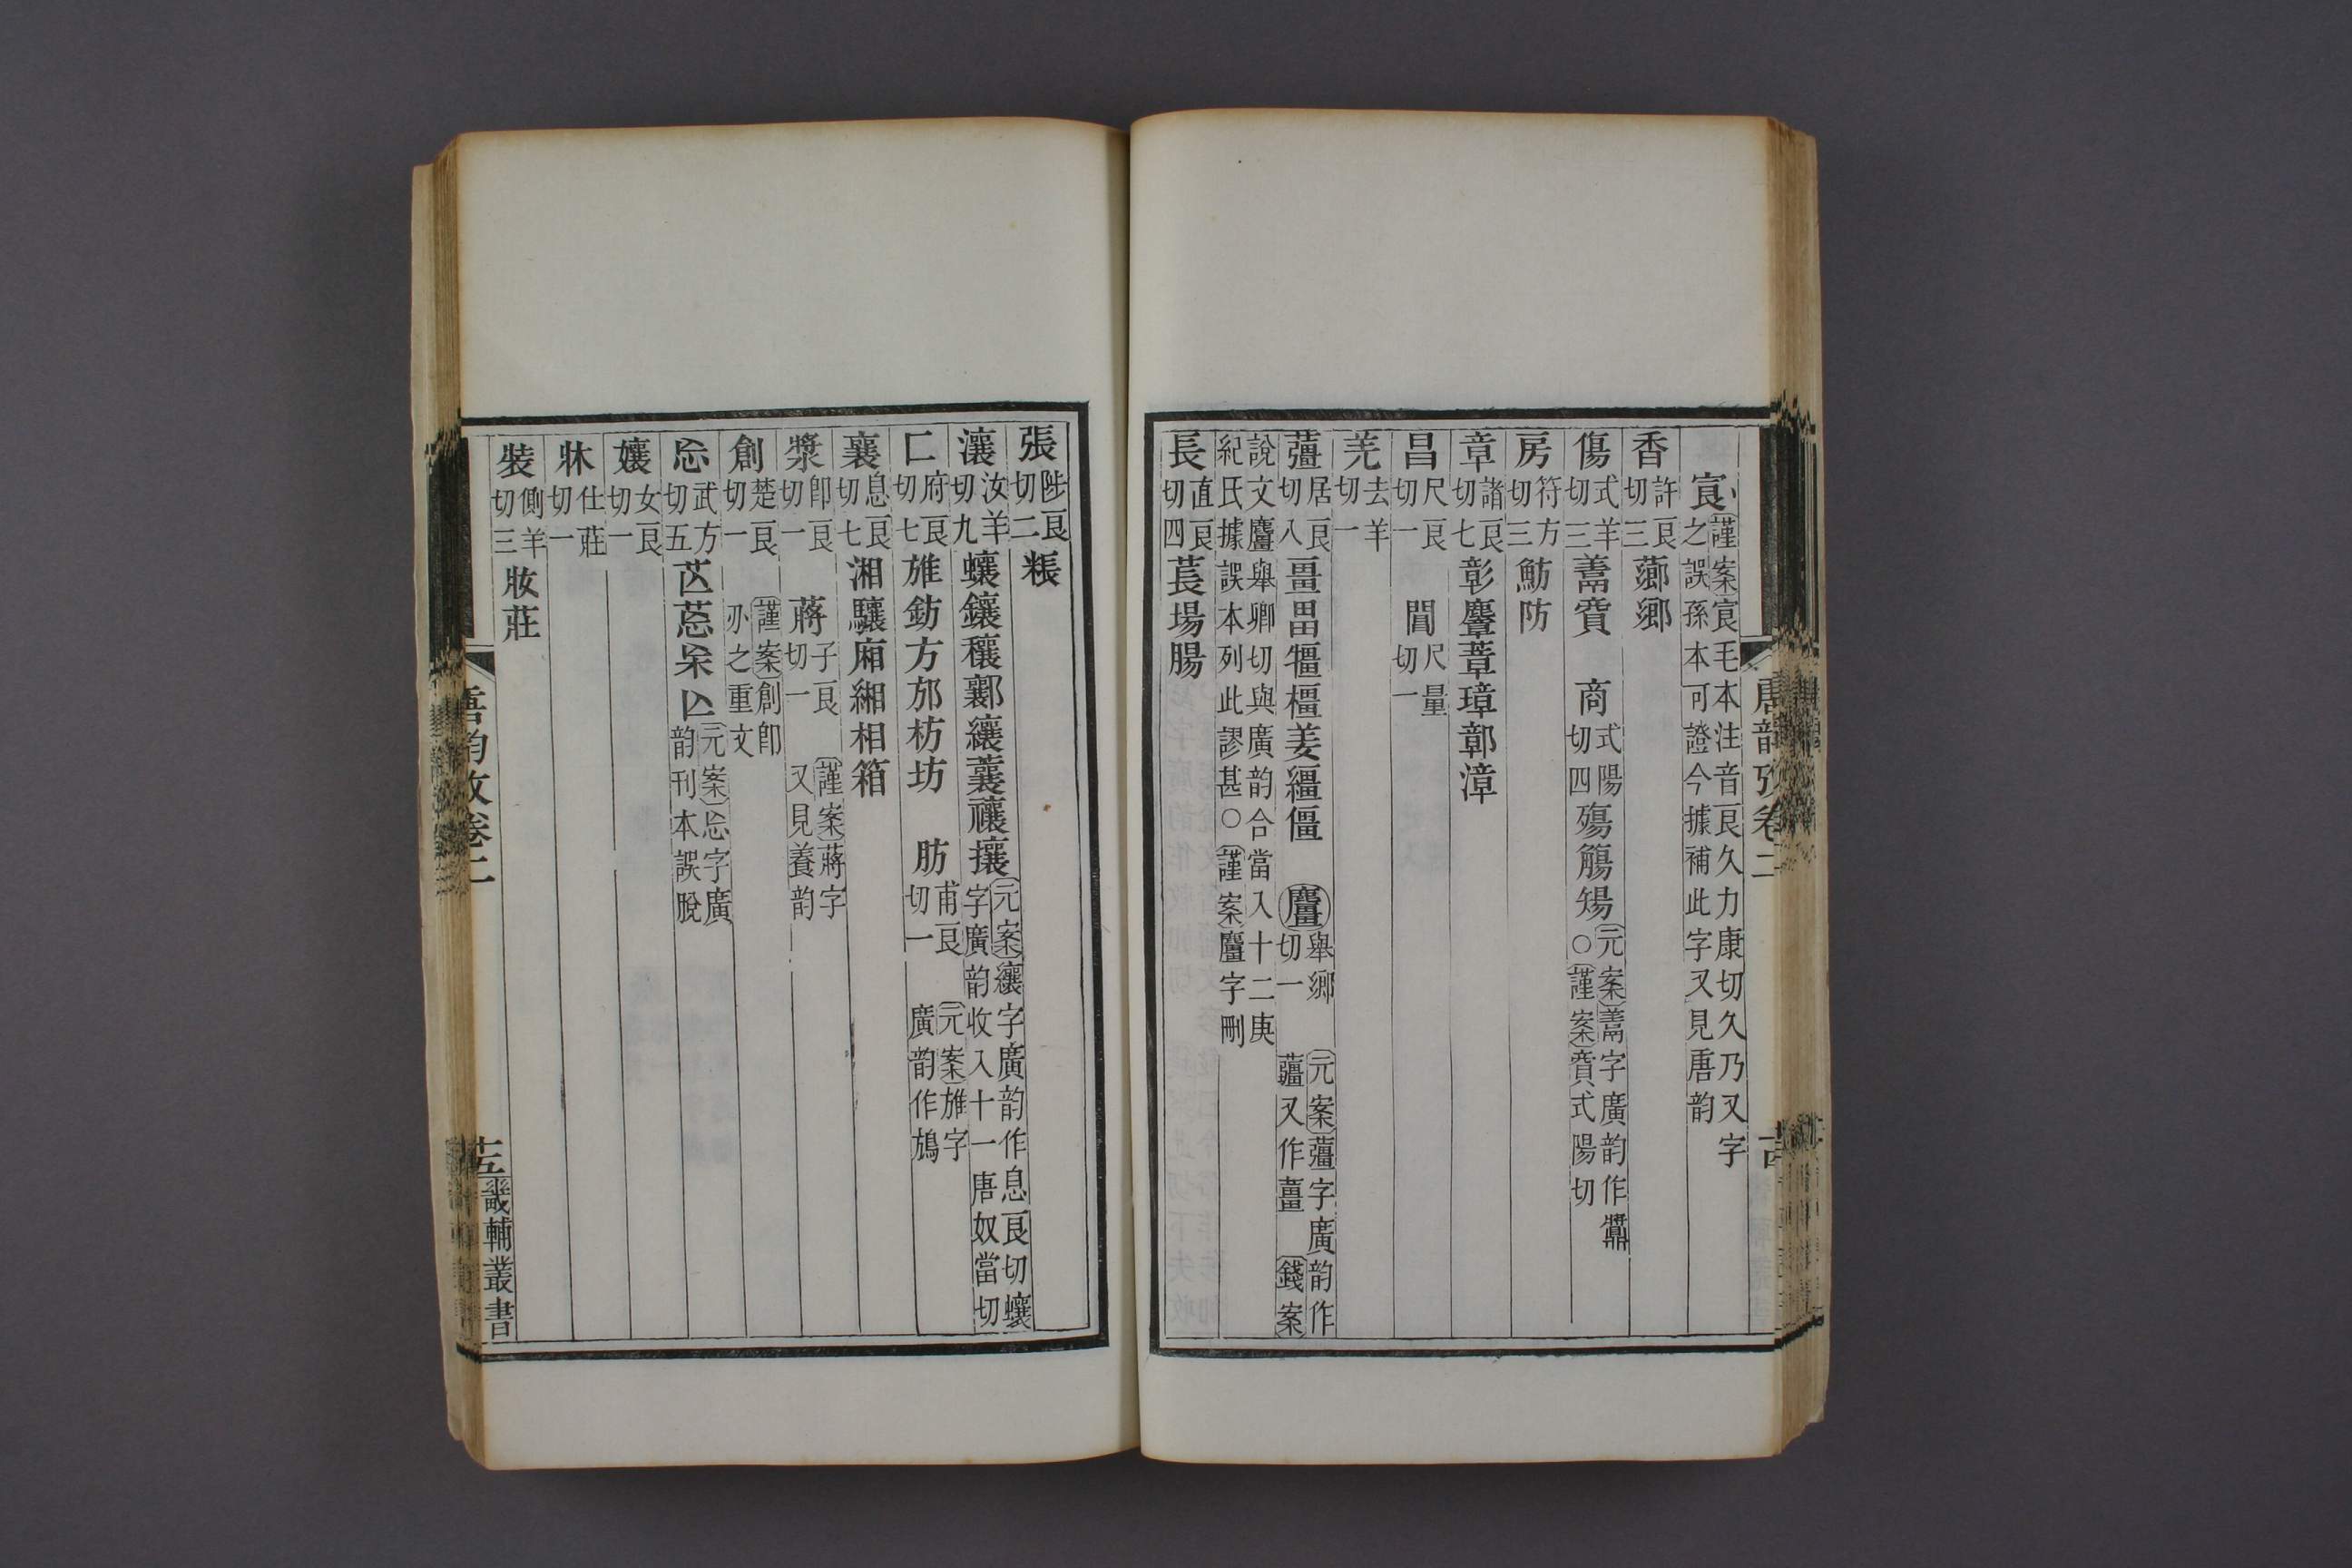 唐韵攷卷二 古
㝗謹案㝗毛本注音良久力康切久乃又字之誤孫本可證今據補此字又見唐韵
香許良切三薌鄉
傷式羊切三鬺賮 商式陽切四殤觴煬元案鬺字廣韵作䵼○謹案賮式陽切
房符方切三魴防
章諸良切七彰麞葦璋鄣漳
昌尺良切一 閶尺量切一
羌去羊切一
薑居良切八畺畕犟橿姜繮僵 麠舉鄉切一 元案薑字廣韵作薑又作薑 錢案
說文麠舉卿切與廣韵合當入十二庚紀氏據誤本列此謬甚○謹案麠字刪
長直良切四萇場腸
張陟良切二粻
瀼汝羊切九蠰鑲穰鄴纕蘘禳攘元案纕字廣韵作息良切蠰字廣韵收入十一唐奴當切
匚府良切七䲱鈁方邡枋坊 肪甫良切一 元案䲱字廣韵作鴋
襄息良切七湘驤廂緗相箱
漿卽良切一 蔣子良切一 謹案蔣字又見養韵
創楚良切一 謹案創卽刅之重文
忘武方切五芒莣杗亾元案忘字廣韵刊本誤脫
孃女良切一
牀仕莊切一
裝側羊切三妝莊
唐韵攷卷二 十五 畿輔叢書